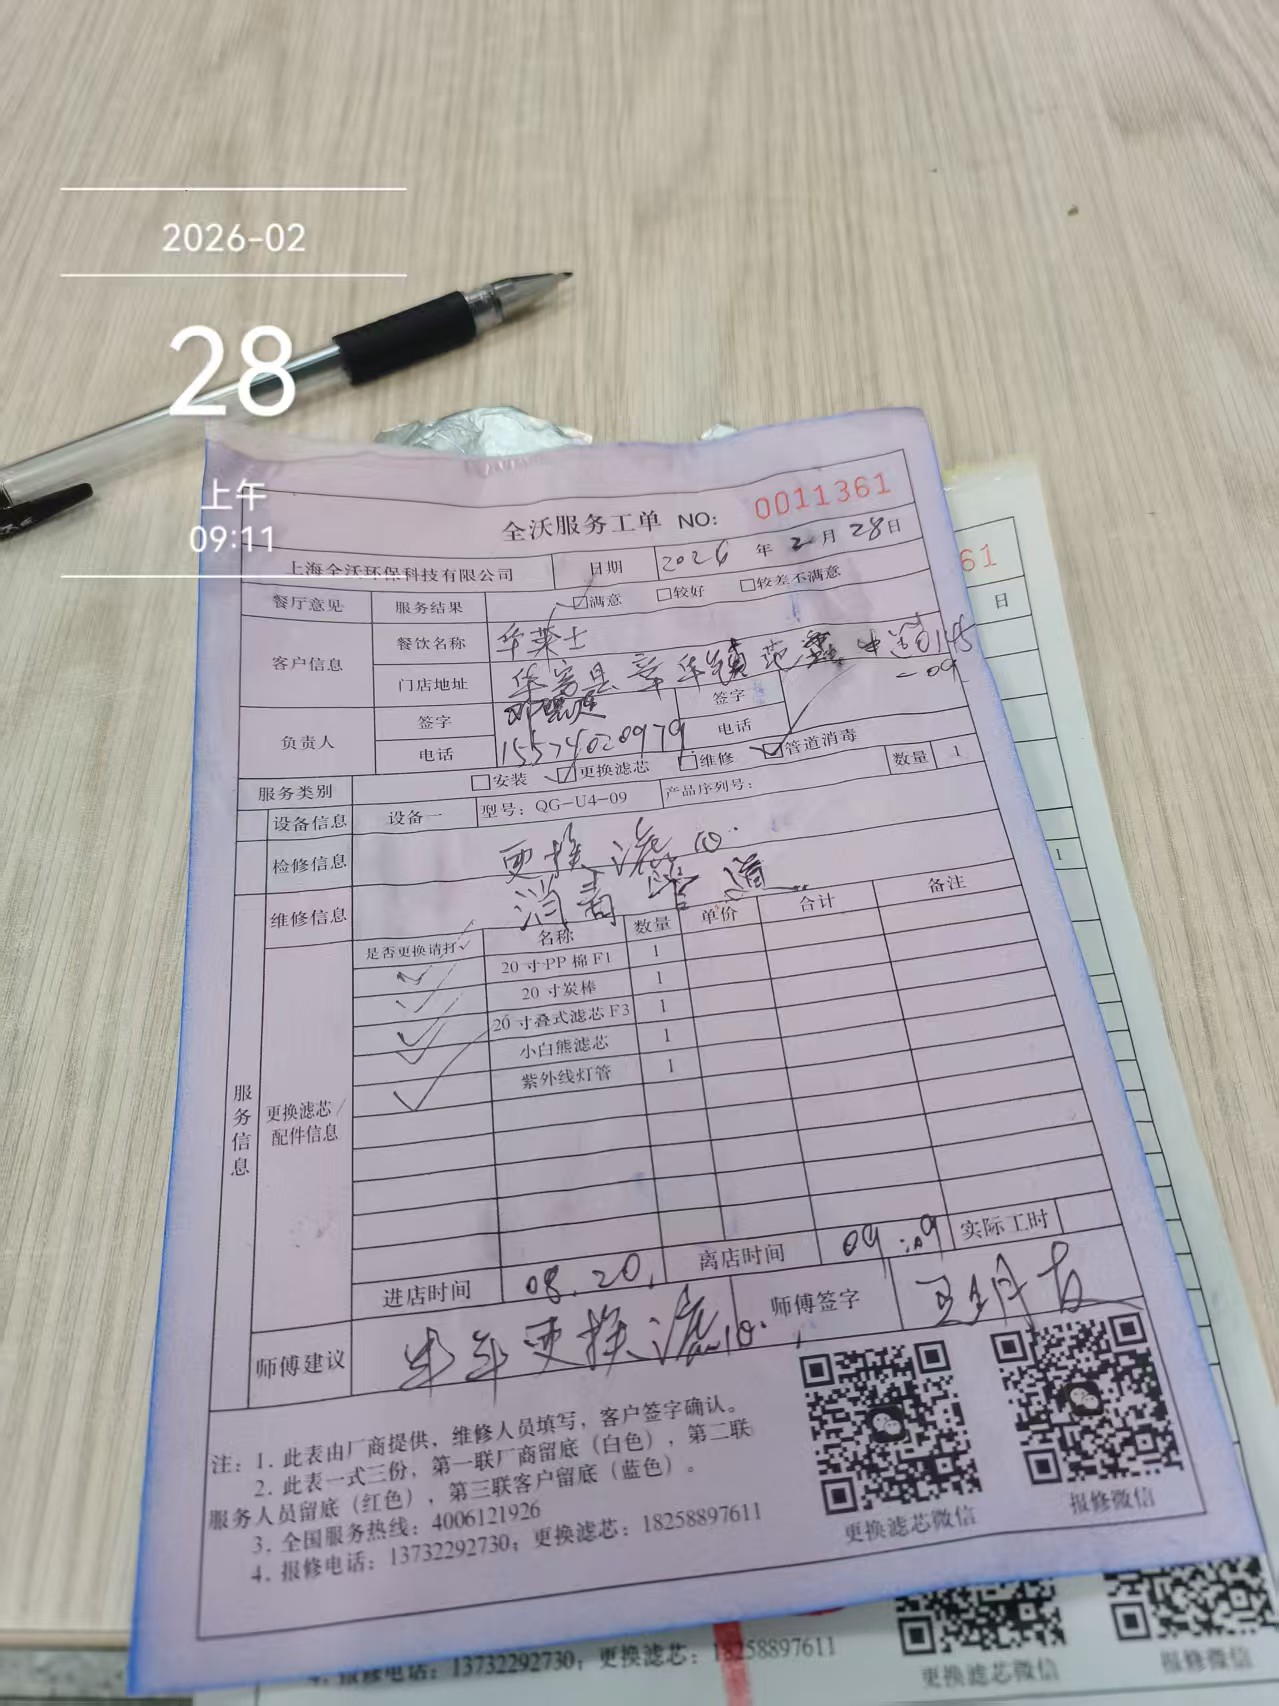 2026-02
28
上午
09:11
全沃服务工单 NO: 0011361
上海全沃环保科技有限公司 日期 2026 年 2 月 28 日
餐厅意见 服务结果 满意 较好 较差不满意
客户信息 餐饮名称 华莱士
门店地址 华容县章华镇 中道145
-09
负责人 签字 签字
电话 15574020979 电话
服务类别 安装 更换滤芯 维修 管道消毒
设备信息 设备一 型号: QG-U4-09 产品序列号: 数量 1
检修信息 更换滤芯.
维修信息 消毒管道
服务信息
更换滤芯/
配件信息
是否更换请打✓ 名称 数量 单价 合计 备注
✓ 20寸PP棉F1 1
✓ 20寸炭棒 1
✓ 20寸叠式滤芯F3 1
✓ 小白熊滤芯 1
✓ 紫外线灯管 1
进店时间 08.20. 离店时间 09:09 实际工时
师傅建议 半年更换滤芯. 师傅签字
注: 1. 此表由厂商提供，维修人员填写，客户签字确认。
2. 此表一式三份，第一联厂商留底（白色），第二联
服务人员留底（红色），第三联客户留底（蓝色）。
3. 全国服务热线: 4006121926
4. 报修电话: 13732292730; 更换滤芯: 18258897611
更换滤芯微信
报修微信
61
日
1
报修电话: 13732292730; 更换滤芯: 18258897611
更换滤芯微信
报修微信